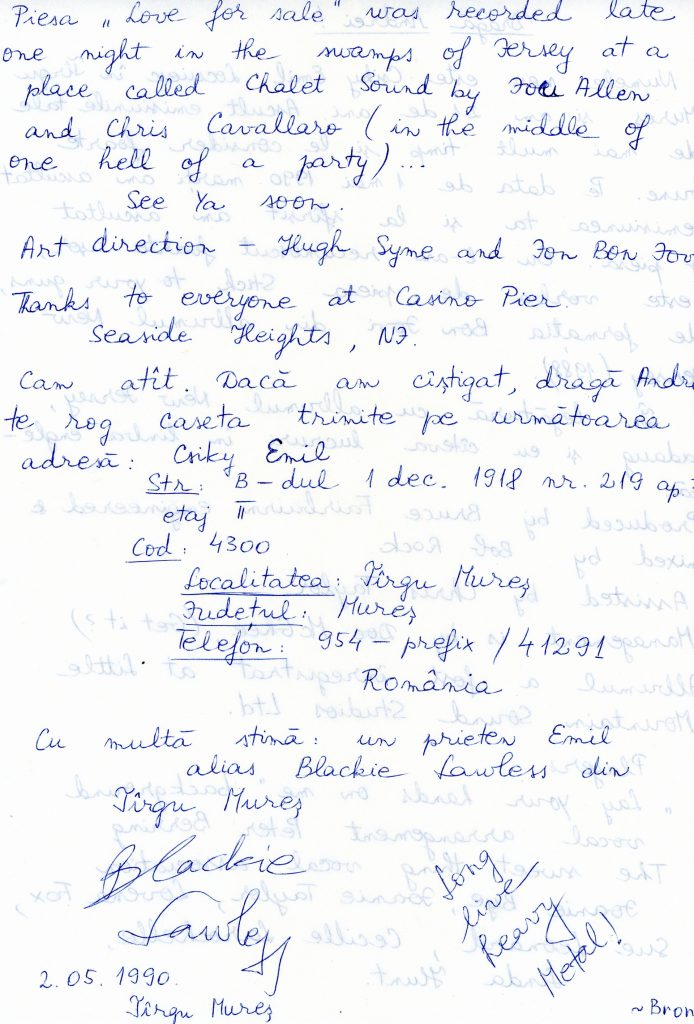 Piesa „Love for sale" was recorded late
one night in the swamps of Jersey at a
place called Chalet Sound by Allen
and Chris Cavallaro (in the middle of
one hell of a party)...
See Ya soon.
Art direction – Hugh Syme and Jon Bon Jov
Thanks to everyone at Casino Pier.
Seaside Heights, NJ.
Cam atît. Dacă am cîştigat, dragă Andre
te rog caseta trimite pe următoarea
adresă: Csiky Emil
Str: B-dul 1 dec. 1918 nr. 219 ap
etaj II
Cod: 4300
Localitatea: Tîrgu Mureş
Judeţul: Mureş
Telefon: 954 – prefix / 41291
România
Cu multă stimă: un prieten Emil
alias Blackie Lawless din
Tîrgu Mureş
Blackie
Lawless
Long
live
heavy
Metal!
2.05.1990.
Tîrgu Mureş
~Bron